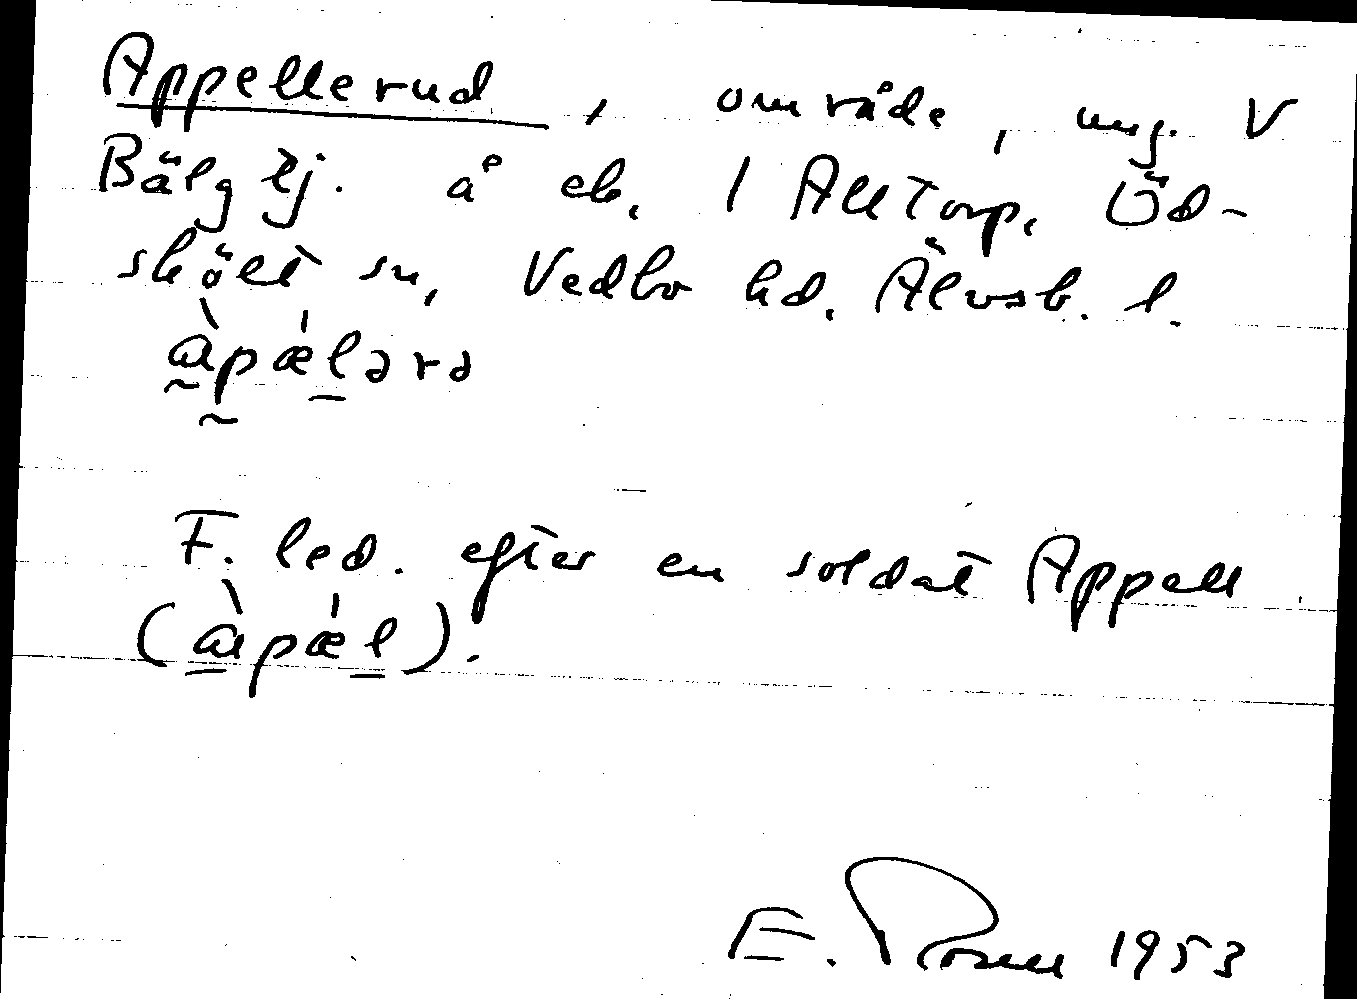 Appellerud, område, ung. V
Bälg tj. å ek. 1 Alltorp, Öd-
skölt sn, Vedbo hd. Älvsb. l.
àpælərə
F. led. efter en soldat Appell
(àpæl).
E. Rosell 1953